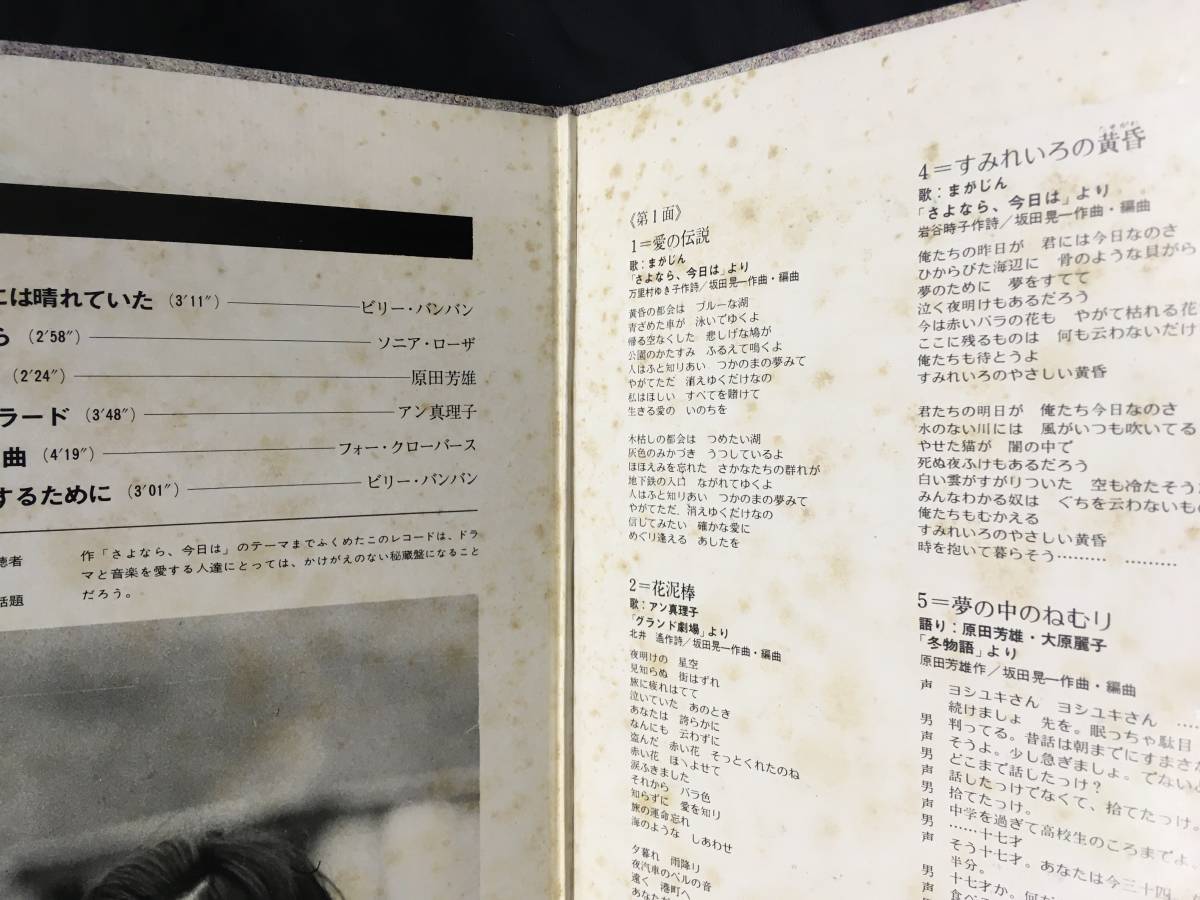 には晴れていた (3′11″) ビリー・バンバン
ら (2′58″) ソニア・ローザ
(2′24″) 原田芳雄
ラード (3′48″) アン真理子
曲 (4′19″) フォー・クローバース
するために (3′01″) ビリー・バンバン
聴者
話題
作「さよなら、今日は」のテーマまでふくめたこのレコードは、ドラ
マと音楽を愛する人達にとっては、かけがえのない秘蔵盤になること
だろう。
《第1面》
1=愛の伝説
歌:まがじん
「さよなら、今日は」より
万里村ゆき子作詩/坂田晃一作曲・編曲
黄昏の都会は ブルーな湖
青ざめた車が 泳いでゆくよ
帰る空なくした 悲しげな鳩が
公園のかたすみ ふるえて鳴くよ
人はふと知りあい つかのまの夢みて
やがてただ 消えゆくだけなの
私はほしい すべてを賭けて
生きる愛の いのちを
木枯しの都会は つめたい湖
灰色のみかづき うつしているよ
ほほえみを忘れた さかなたちの群れが
地下鉄の入口 ながれてゆくよ
人はふと知りあい つかのまの夢みて
やがてただ、消えゆくだけなの
信じてみたい 確かな愛に
めぐり逢える あしたを
2=花泥棒
歌:アン真理子
「グランド劇場」より
北井 遙作詩/坂田晃一作曲・編曲
夜明けの 星空
見知らぬ 街はずれ
旅に疲れはてて
泣いていた あのとき
あなたは 誇らかに
なんにも 云わずに
盗んだ 赤い花 そっとくれたのね
赤い花 ほゝよせて
涙ふきました
それから バラ色
知らずに 愛を知り
旅の運命忘れ
海のような しあわせ
夕暮れ 雨降り
夜汽車のベルの音
遠く 港町へ
あなただ
4=すみれいろの黄昏
歌:まがじん
「さよなら、今日は」より
岩谷時子作詩/坂田晃一作曲・編曲
俺たちの昨日が 君には今日なのさ
ひからびた海辺に 骨のような貝がら
夢のために 夢をすてて
泣く夜明けもあるだろう
今は赤いバラの花も やがて枯れる花
ここに残るものは 何も云わないだけ
俺たちも待とうよ
すみれいろのやさしい黄昏
君たちの明日が 俺たち今日なのさ
水のない川には 風がいつも吹いてる
やせた猫が 闇の中で
死ぬ夜ふけもあるだろう
白い雲がすがりついた 空も冷たそうだ
みんなわかる奴は ぐちを云わないもの
俺たちもむかえる
すみれいろのやさしい黄昏
時を抱いて暮らそう……… ………
5=夢の中のねむり
語り:原田芳雄・大原麗子
「冬物語」より
原田芳雄作/坂田晃一作曲・編曲
声 ヨシユキさん ヨシユキさん ……
続けましょ 先を。眠っちゃ駄目
男 判ってる。昔話は朝までにすまさな
声 そうよ。少し急ぎましょ。でないと
男 どこまで話したっけ?
声 話したっけでなくて、捨てたっけ。
男 捨てたっけ。
声 中学を過ぎて高校生のころまでよ
男 ……十七才
声 そう十七才。あなたは今三十四
半分。
男 十七才か。何だ
声 食べ